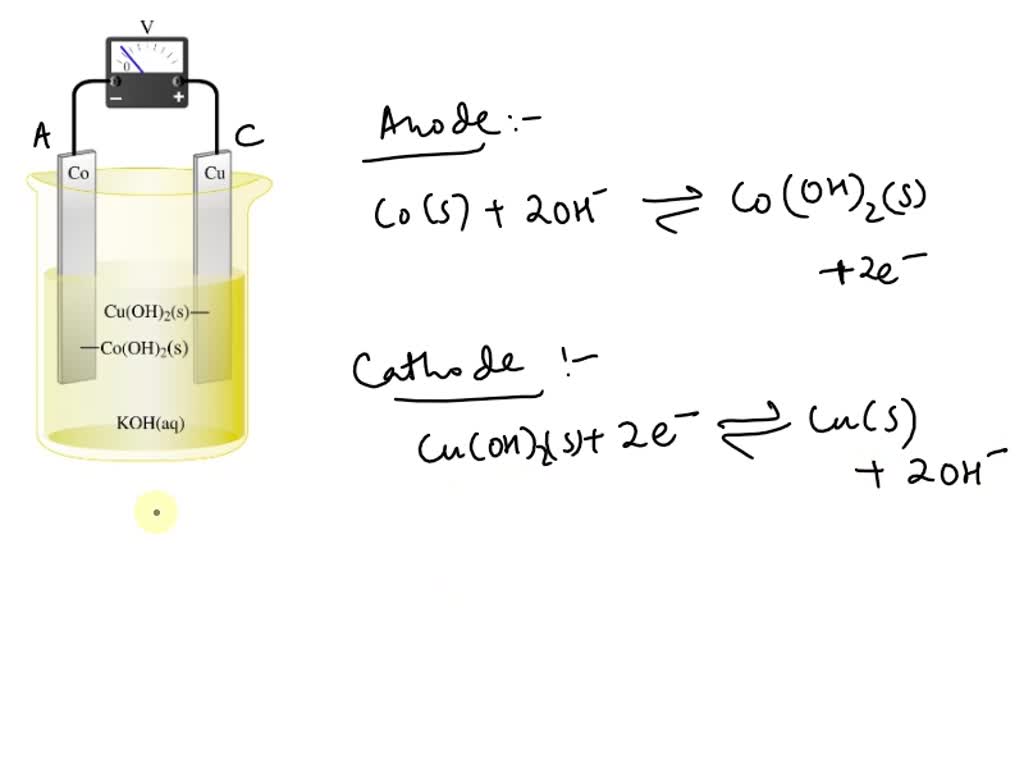 V
0
− +
A C
Co Cu
Cu(OH)₂(s)
Co(OH)₂(s)
KOH(aq)
Anode:-
Co(s) + 2OH⁻ ⇌ Co(OH)₂(s)
+2e⁻
Cathode :-
Cu(OH)₂(s)+ 2e⁻ ⇌ Cu(s)
+ 2OH⁻